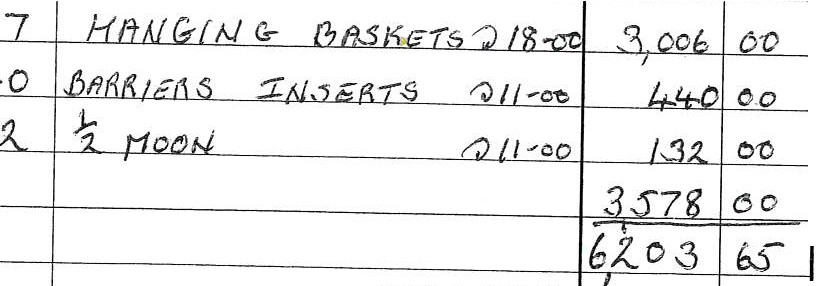 7 HANGING BASKETS @ 18-00 3,006 00
0 BARRIERS INSERTS @ 11-00 440 00
2 ½ MOON @ 11-00 132 00
3578 00
6,203 65